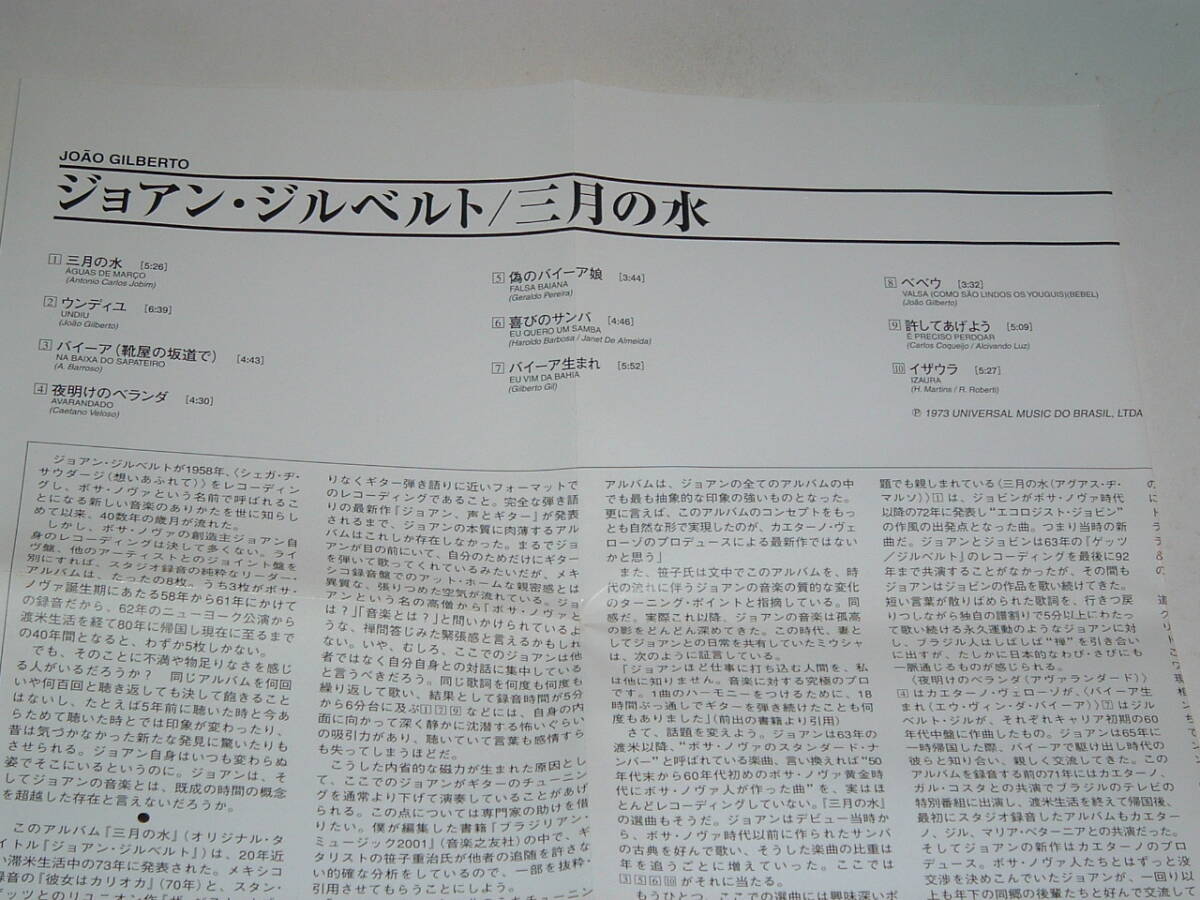 JOÃO GILBERTO
ジョアン・ジルベルト/三月の水
1 三月の水 [5:26]
ÁGUAS DE MARÇO
(Antonio Carlos Jobim)
2 ウンディユ [6:39]
UNDIU
(João Gilberto)
3 バイーア(靴屋の坂道で) [4:43]
NA BAIXA DO SAPATEIRO
(A. Barroso)
4 夜明けのベランダ [4:30]
AVARANDADO
(Caetano Veloso)
5 偽のバイーア娘 [3:44]
FALSA BAIANA
(Geraldo Pereira)
6 喜びのサンバ [4:46]
EU QUERO UM SAMBA
(Haroldo Barbosa / Janet De Almeida)
7 バイーア生まれ [5:52]
EU VIM DA BAHIA
(Gilberto Gil)
8 ベベウ [3:32]
VALSA (COMO SÃO LINDOS OS YOUGUIS)(BEBEL)
(João Gilberto)
9 許してあげよう [5:09]
É PRECISO PERDOAR
(Carlos Coqueijo / Alcivando Luz)
10 イザウラ [5:27]
IZAURA
(H. Martins / R. Roberti)
℗ 1973 UNIVERSAL MUSIC DO BRASIL, LTDA
ジョアン・ジルベルトが1958年、〈シェガ・ヂ・
サウダージ(想いあふれて)〉をレコーディン
グし、ボサ・ノヴァという名前で呼ばれるこ
とになる新しい音楽のありかたを世に知らし
めて以来、40数年の歳月が流れた。
しかし、ボサ・ノヴァの創造主ジョアン自
身のレコーディングは決して多くない。ライ
ヴ盤、他のアーティストとのジョイント盤を
別にすれば、スタジオ録音の純粋なリーダー・
アルバムは、たったの8枚。うち3枚がボサ・
ノヴァ誕生期にあたる58年から61年にかけて
の録音だから、62年のニューヨーク公演から
渡米生活を経て80年に帰国し現在に至るまで
の40年間となると、わずか5枚しかない。
でも、そのことに不満や物足りなさを感じ
る人がいるだろうか? 同じアルバムを何回
いや何百回と聴き返しても決して飽きること
はないし、たとえば5年前に聴いた時と今あ
らためて聴いた時とでは印象が変わったり、
昔は気づかなかった新たな発見に驚いたりも
させられる。ジョアン自身はいつも変わらぬ
姿でそこにいるというのに。ジョアンは、そ
してジョアンの音楽とは、既成の時間の概念
を超越した存在と言えないだろうか。
●
このアルバム『三月の水』(オリジナル・タ
イトル『ジョアン・ジルベルト』)は、20年近
い滞米生活中の73年に発表された。メキシコ
録音の『彼女はカリオカ』(70年)と、スタン・
りなくギター弾き語りに近いフォーマットで
のレコーディングであること。完全な弾き語
りの最新作『ジョアン、声とギター』が発表
されるまで、ジョアンの本質に肉薄するアル
バムはこれしか存在しなかった。まるでジョ
アンが目の前にいて、自分のためだけにギター
を弾いて歌ってくれているみたいだが、メキ
シコ録音盤でのアット・ホームな親密感とは
異質な、張りつめた空気が流れている。ジョ
アンという名の高僧から「ボサ・ノヴァと
は?」「音楽とは?」と問いかけられているよ
うな、禅問答じみた緊張感と言えるかもしれ
ない。いや、むしろ、ここでのジョアンは他
者ではなく自分自身との対話に集中している
と言うべきだろう。同じ歌詞を何度も何度も
繰り返して歌い、結果として録音時間が5分
から6分台に及ぶ1 7 9などには、自身の内
面に向かって深く静かに沈潜する怖いぐらい
の吸引力があり、聴いていて言葉も感情すら
も失ってしまうほどだ。
こうした内省的な磁力が生まれた原因とし
て、ここでのジョアンがギターのチューニン
グを通常より下げて演奏していることがあげ
られる。この点については専門家の助けを借
りたい。僕が編集した書籍『ブラジリアン・
ミュージック2001』(音楽之友社)の中で、ギ
タリストの笹子重治氏が他者の追随を許さな
い的確な分析をしているので、一部を抜粋・
引用させてもらうことにしよう。
アルバムは、ジョアンの全てのアルバムの中
でも最も抽象的な印象の強いものとなった。
更に言えば、このアルバムのコンセプトをもっ
とも自然な形で実現したのが、カエターノ・ヴェ
ローゾのプロデュースによる最新作ではない
かと思う」
また、笹子氏は文中でこのアルバムを、時
代の流れに伴うジョアンの音楽の質的な変化
のターニング・ポイントと指摘している。同
感だ。実際これ以降、ジョアンの音楽は孤高
の影をどんどん深めてきた。この時代、妻と
してジョアンとの日常を共有していたミウシャ
は、次のように証言している。
「ジョアンほど仕事に打ち込む人間を、私
は他に知りません。音楽に対する究極のプロ
です。1曲のハーモニーをつけるために、18
時間ぶっ通しでギターを弾き続けたことも何
度もありました」(前出の書籍より引用)
さて、話題を変えよう。ジョアンは63年の
渡米以降、“ボサ・ノヴァのスタンダード・ナ
ンバー”と呼ばれている楽曲、言い換えれば“50
年代末から60年代初めのボサ・ノヴァ黄金時
代にボサ・ノヴァ人が作った曲”を、実はほ
とんどレコーディングしていない。『三月の水』
の選曲もそうだ。ジョアンはデビュー当時か
ら、ボサ・ノヴァ時代以前に作られたサンバ
の古典を好んで歌い、そうした楽曲の比重は
年を追うごとに増えていった。ここでは
3 5 6 10がそれに当たる。
もうひとつ、ここでの選曲には興味深いポ
題でも親しまれている〈三月の水(アグアス・ヂ・
マルソ)〉1は、ジョビンがボサ・ノヴァ時代
以降の72年に発表し“エコロジスト・ジョビン”
の作風の出発点となった曲。つまり当時の新
曲だ。ジョアンとジョビンは63年の『ゲッツ
/ジルベルト』のレコーディングを最後に92
年まで共演することがなかったが、その間も
ジョアンはジョビンの作品を歌い続けてきた。
短い言葉が散りばめられた歌詞を、行きつ戻
りつしながら独自の譜割りで5分以上にわたっ
て歌い続ける永久運動のようなジョアンに対
し、ブラジル人はしばしば“禅”を引き合い
に出すが、たしかに日本的なわび・さびにも
一脈通じるものが感じられる。
〈夜明けのベランダ(アヴァランダード)〉
4はカエターノ・ヴェローゾが、〈バイーア生
まれ(エウ・ヴィン・ダ・バイーア)〉7はジル
ベルト・ジルが、それぞれキャリア初期の60
年代中盤に作曲したもの。ジョアンは65年に
一時帰国した際、バイーアで駆け出し時代の
彼らと知り合い、親しく交流してきた。この
アルバムを録音する前の71年にはカエターノ、
ガル・コスタとの共演でブラジルのテレビの
特別番組に出演し、渡米生活を終えて帰国後、
最初にスタジオ録音したアルバムもカエター
ノ、ジル、マリア・ベターニアとの共演だった。
そしてジョアンの新作はカエターノのプロ
デュース。ボサ・ノヴァ人たちとはずっと没
交渉を決めこんでいたジョアンが、一回り以
上も年下の同郷の後輩たちと好んで交流して